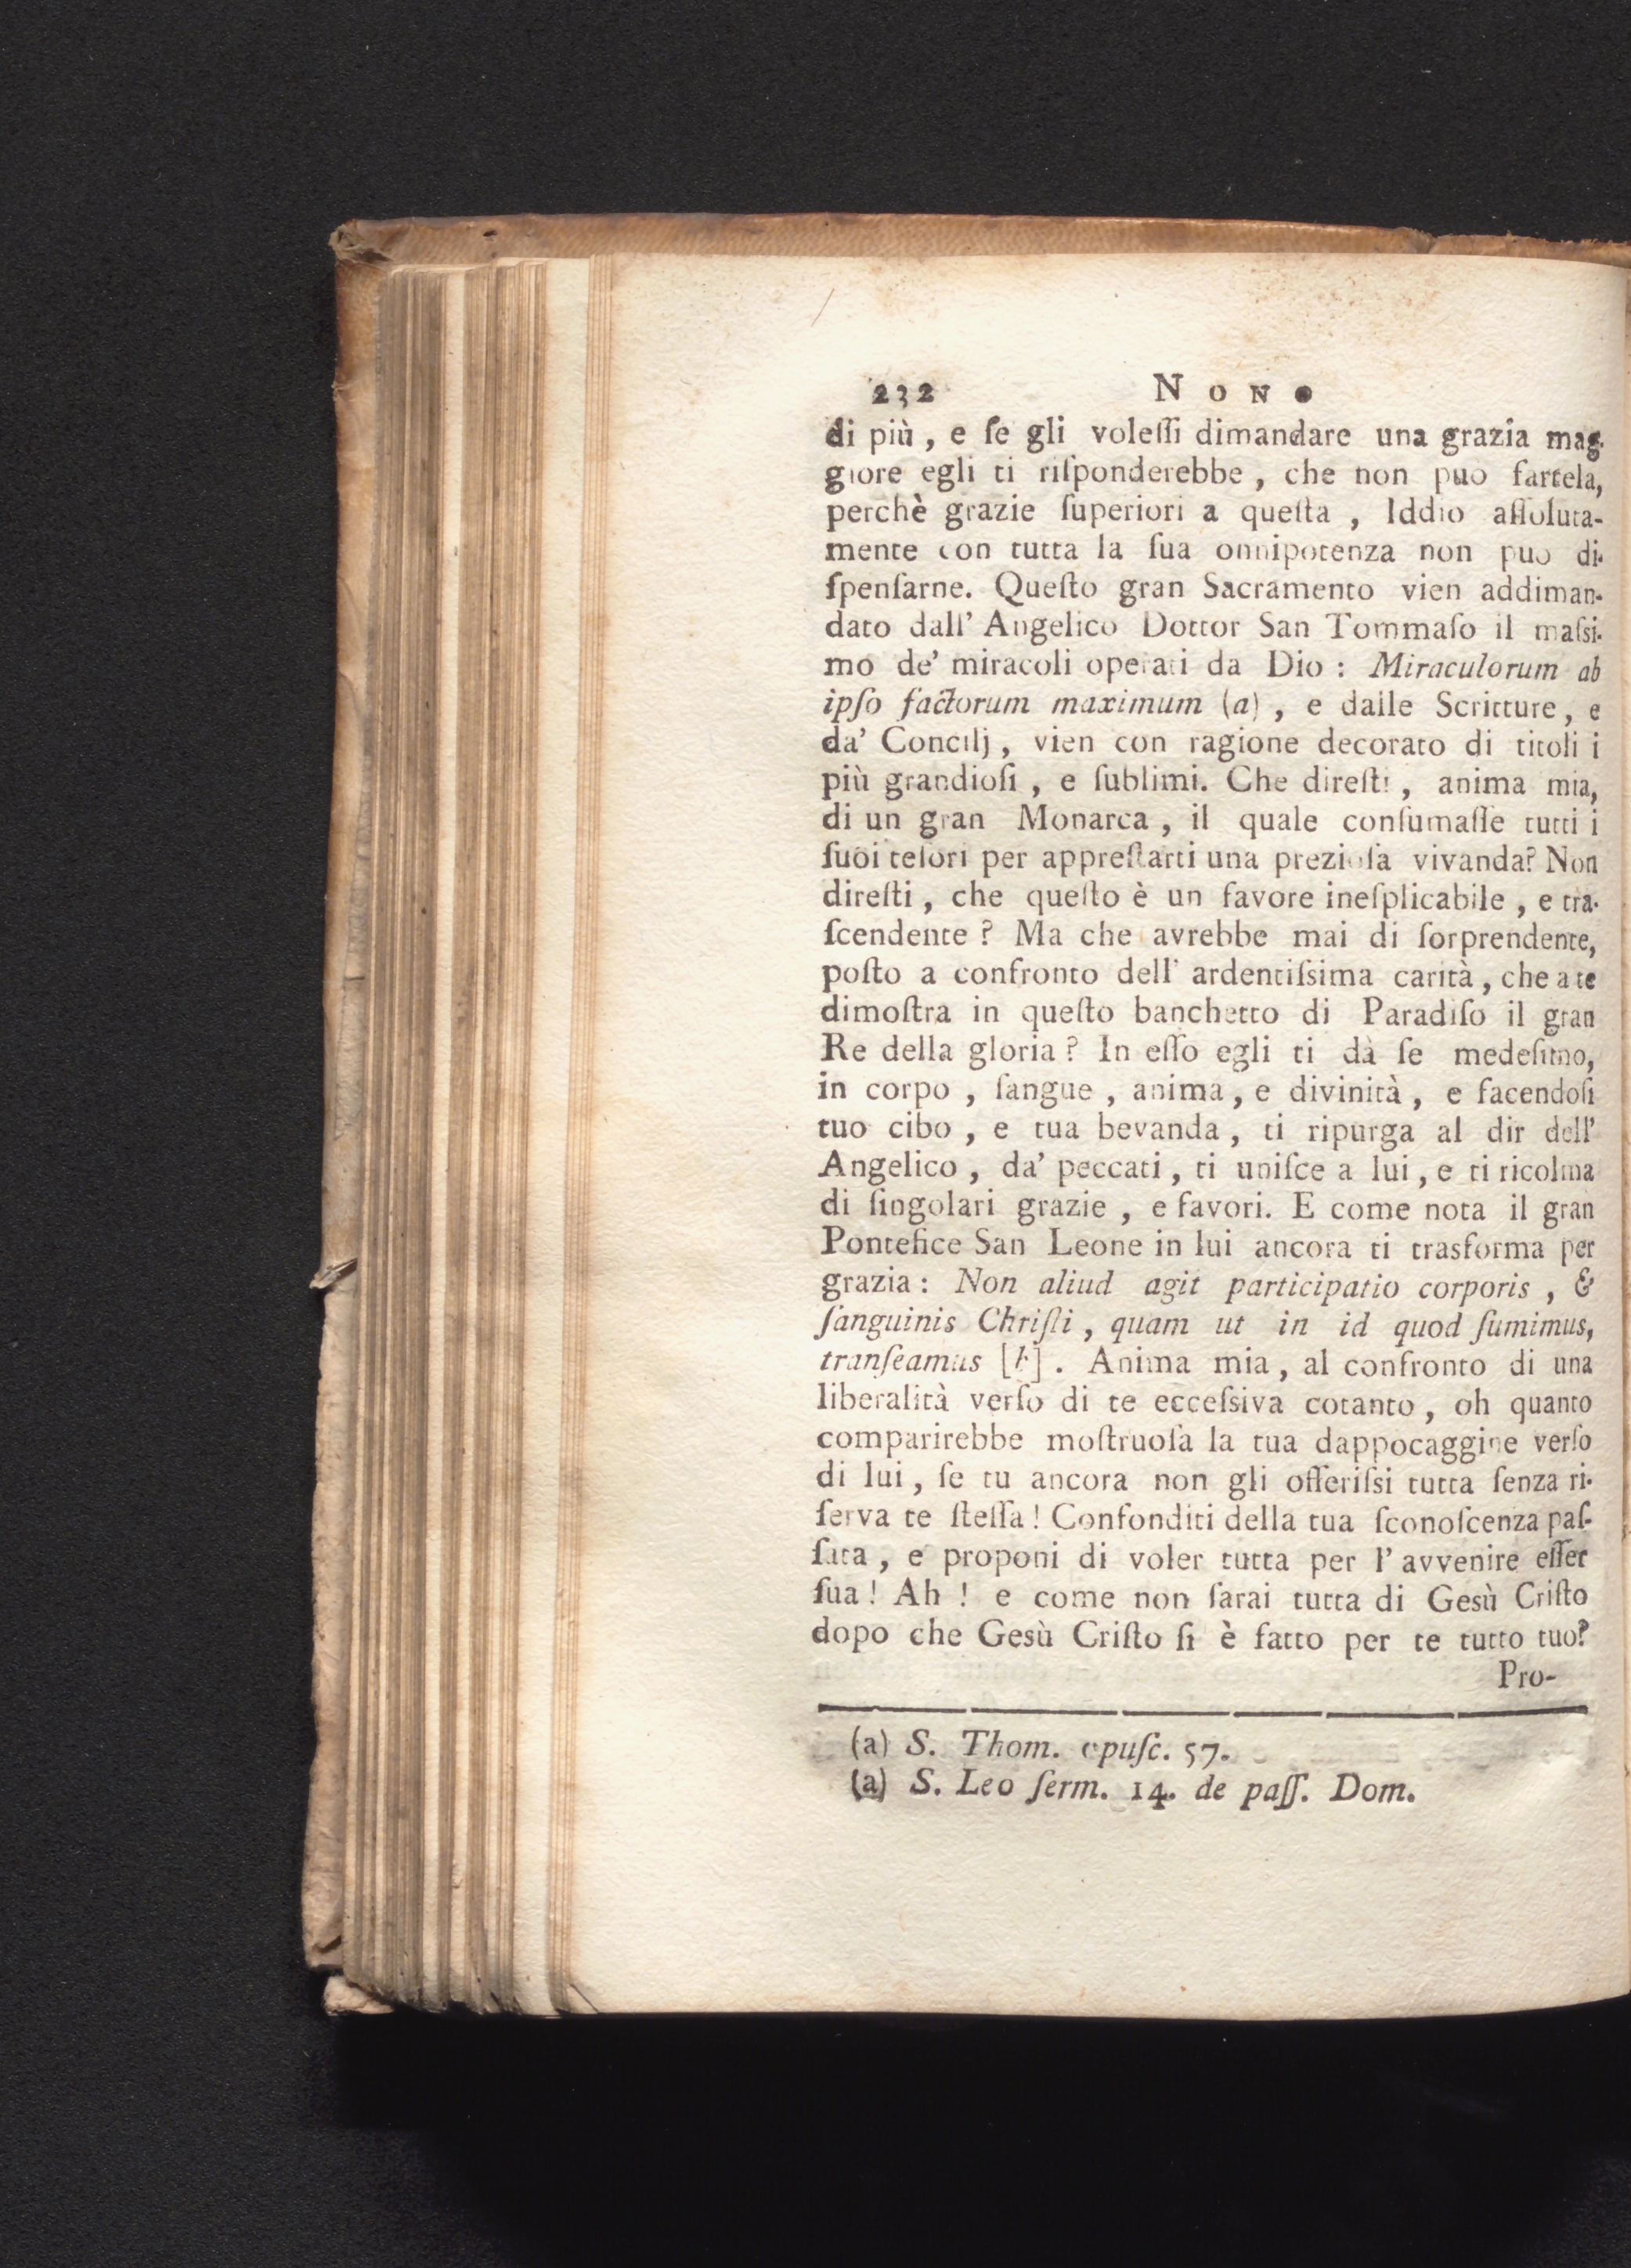 232 NONO
di più, e ſe gli voleſſi dimandare una grazia mag-
giore egli ti riſponderebbe, che non puo fartela,
perchè grazie ſuperiori a queſta, Iddio aſſoluta-
mente con tutta la ſua onnipotenza non puo di-
ſpenſarne. Queſto gran Sacramento vien addiman-
dato dall' Angelico Dottor San Tommaſo il maſsi-
mo de' miracoli operati da Dio: Miraculorum ab
ipſo factorum maximum (a), e dalle Scritture, e
da' Concilj, vien con ragione decorato di titoli i
più grandioſi, e ſublimi. Che direſti, anima mia,
di un gran Monarca, il quale conſumaſſe tutti i
ſuoi teſori per appreſtarti una prezioſa vivanda? Non
direſti, che queſto è un favore ineſplicabile, e tra-
ſcendente? Ma che avrebbe mai di ſorprendente,
poſto a confronto dell' ardentiſsima carità, che a te
dimoſtra in queſto banchetto di Paradiſo il gran
Re della gloria? In eſſo egli ti dà ſe medeſimo,
in corpo, ſangue, anima, e divinità, e facendoſi
tuo cibo, e tua bevanda, ti ripurga al dir dell'
Angelico, da' peccati, ti uniſce a lui, e ti ricolma
di ſingolari grazie, e favori. E come nota il gran
Pontefice San Leone in lui ancora ti trasforma per
grazia: Non aliud agit participatio corporis, &
ſanguinis Chriſti, quam ut in id quod ſumimus,
tranſeamus [b]. Anima mia, al confronto di una
liberalità verſo di te ecceſsiva cotanto, oh quanto
comparirebbe moſtruoſa la tua dappocaggine verſo
di lui, ſe tu ancora non gli offeriſsi tutta ſenza ri-
ſerva te ſteſſa! Confonditi della tua ſconoſcenza paſ-
ſata, e proponi di voler tutta per l'avvenire eſſer
ſua! Ah! e come non ſarai tutta di Gesù Criſto
dopo che Gesù Criſto ſi è fatto per te tutto tuo?
Pro-
(a) S. Thom. opuſc. 57.
(a) S. Leo ſerm. 14. de paſſ. Dom.